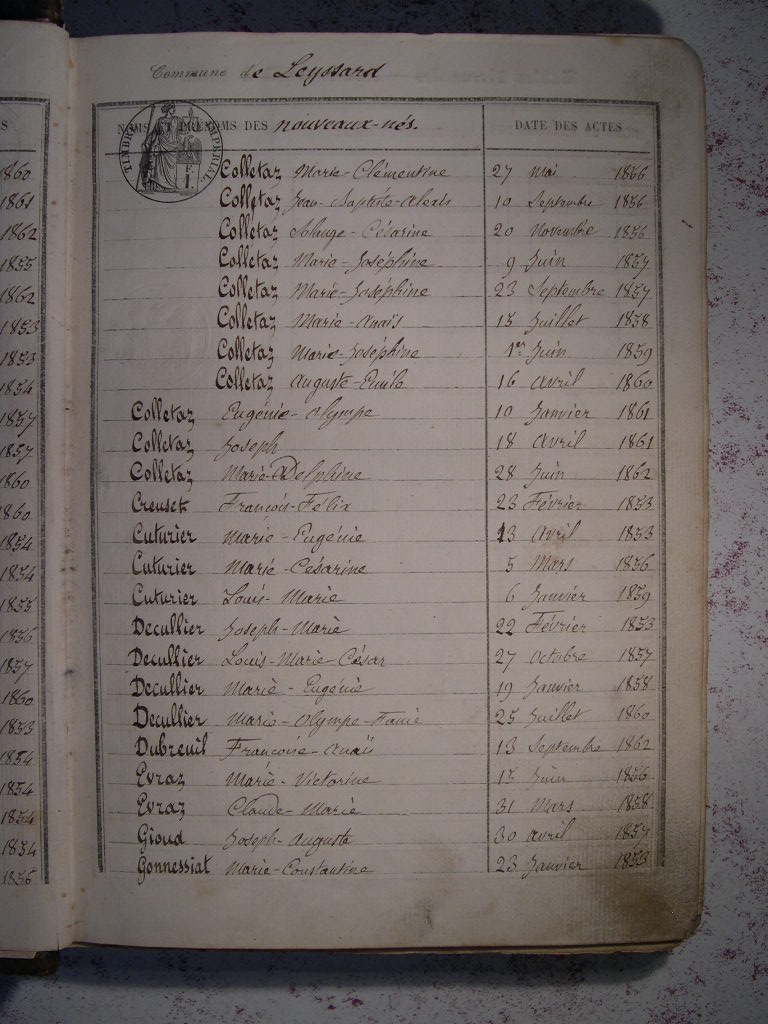 Commune de Leyssard
NOMS ET PRÉNOMS DES nouveaux-nés. DATE DES ACTES
TIMBRE IMPÉRIAL
Colletaz Marie-Clémentine 27 Mai 1856
Colletaz Jean-Baptiste-Alexis 10 Septembre 1856
Colletaz Solange-Césarine 20 Novembre 1856
Colletaz Marie-Joséphine 9 Juin 1857
Colletaz Marie-Joséphine 23 Septembre 1857
Colletaz Marie-Anaïs 15 Juillet 1858
Colletaz Marie-Joséphine 1er Juin 1859
Colletaz Auguste-Emile 16 Avril 1860
Colletaz Eugénie-Olympe 10 Janvier 1861
Colletaz Joseph 18 Avril 1861
Colletaz Marie-Delphine 28 Juin 1862
Creuset François-Félix 23 Février 1853
Cuturier Marie-Eugénie 13 Avril 1853
Cuturier Marie-Césarine 5 Mars 1856
Cuturier Louis-Marie 6 Janvier 1859
Decullier Joseph-Marie 22 Février 1853
Decullier Louis-Marie-César 27 Octobre 1857
Decullier Marie-Eugénie 19 Janvier 1858
Decullier Marie-Olympe 25 Juillet 1860
Dubreuil Françoise-Anaïs 13 Septembre 1862
Evraz Marie-Victorine 15 Juin 1856
Evraz Claude-Marie 31 Mars 1858
Gioud Joseph-Auguste 30 Avril 1857
Gonnessiat Marie-Constantine 23 Janvier 1853
S
1860
1861
1862
1855
1862
1853
1853
1854
1857
1857
1860
1860
1854
1854
1855
1856
1857
1860
1853
1854
1854
1854
1854
1856